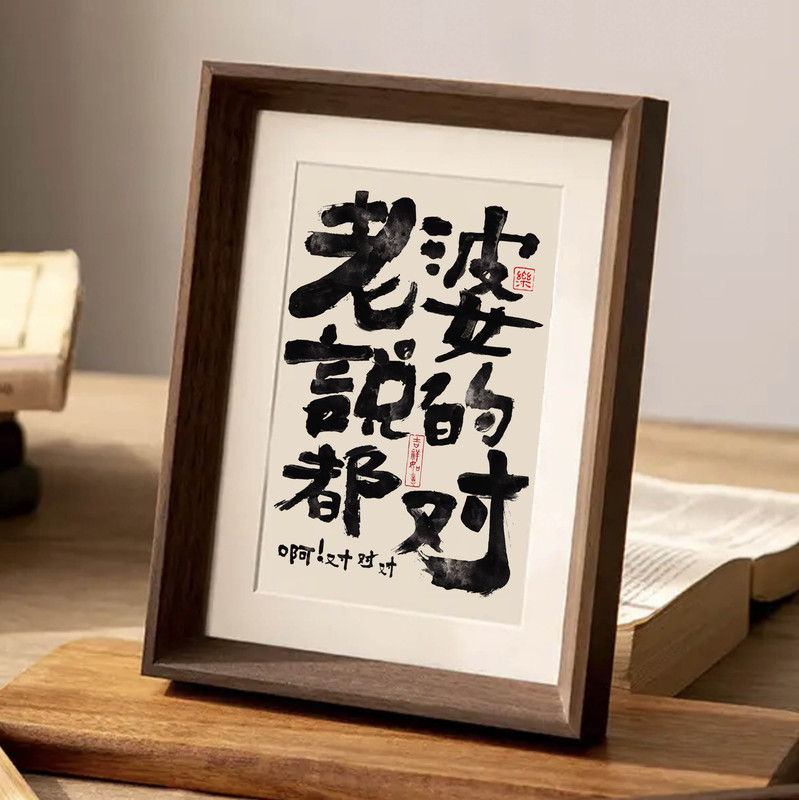 老婆
樂
說的
吉祥如意
都对
啊!对对对